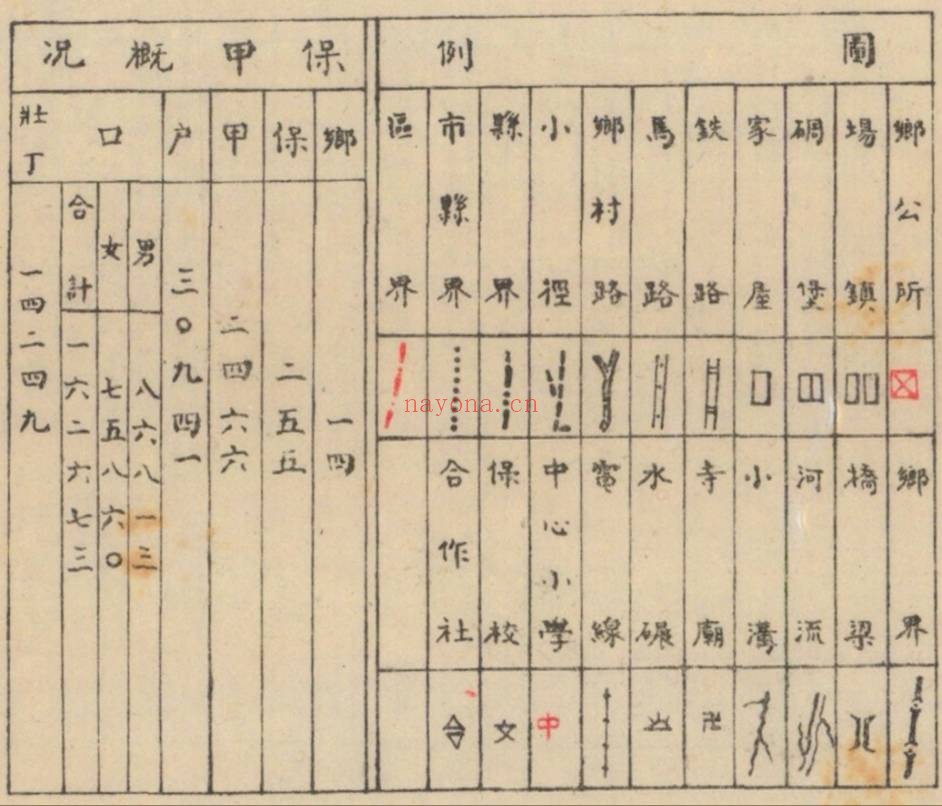 圖例
鄉公所
場鎮
碉堡
家屋
鉄路
馬路
鄉村路
小徑
縣界
市縣界
區界
鄉界
橋梁
河流
小溝
寺廟
卍
水碾
電線
中心小學
中
保校
文
合作社
合
保甲概況
鄉
一四
保
二五五
甲
二四六六
户
三〇九四一
口
男
八六八一三
女
七五八六〇
合計
一六二六七三
壯丁
一四二四九
nayona.cn